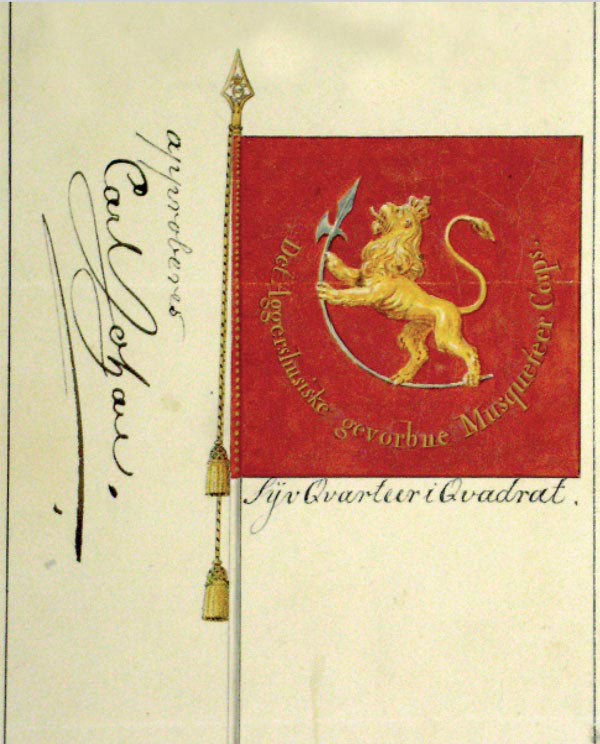 approberes
Carl Johan.
Det Aggershusiske gevorbne Musqueteer Corps.
Syv Qvarteer i Qvadrat.